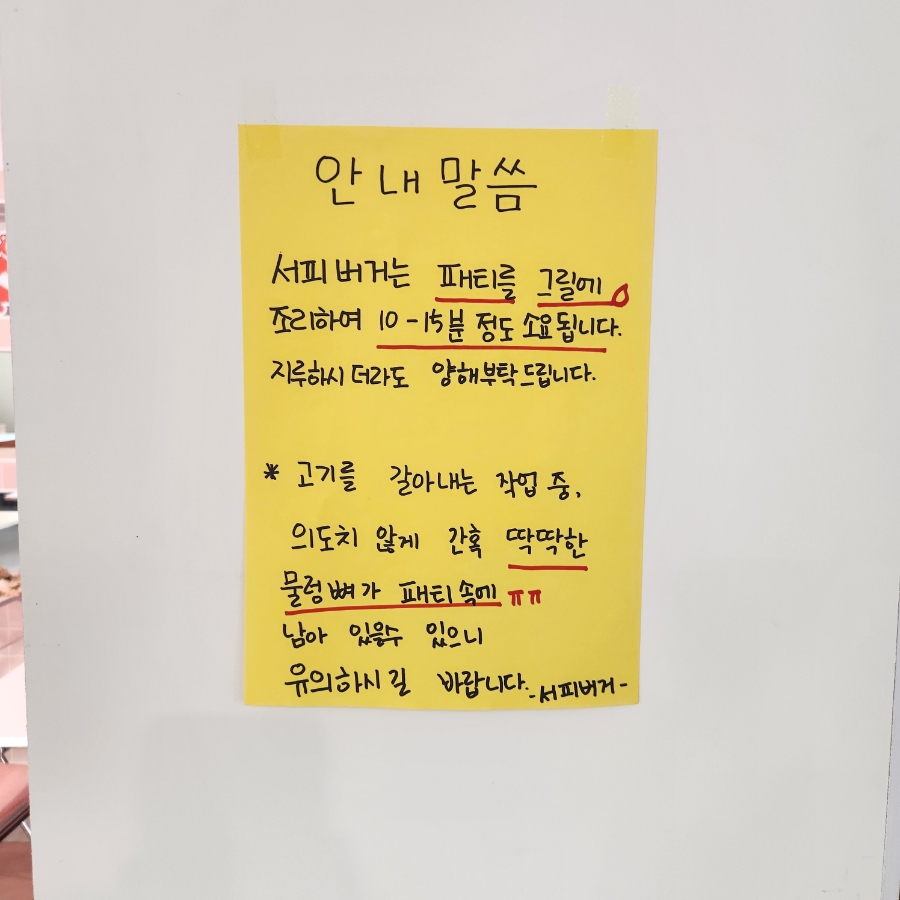 안내말씀
서피버거는 패티를 그릴에
조리하여 10-15분 정도 소요됩니다.
지루하시더라도 양해부탁드립니다.
* 고기를 갈아내는 작업 중,
의도치 않게 간혹 딱딱한
물렁뼈가 패티속에 ㅠㅠ
남아 있을수 있으니
유의하시길 바랍니다.
-서피버거-